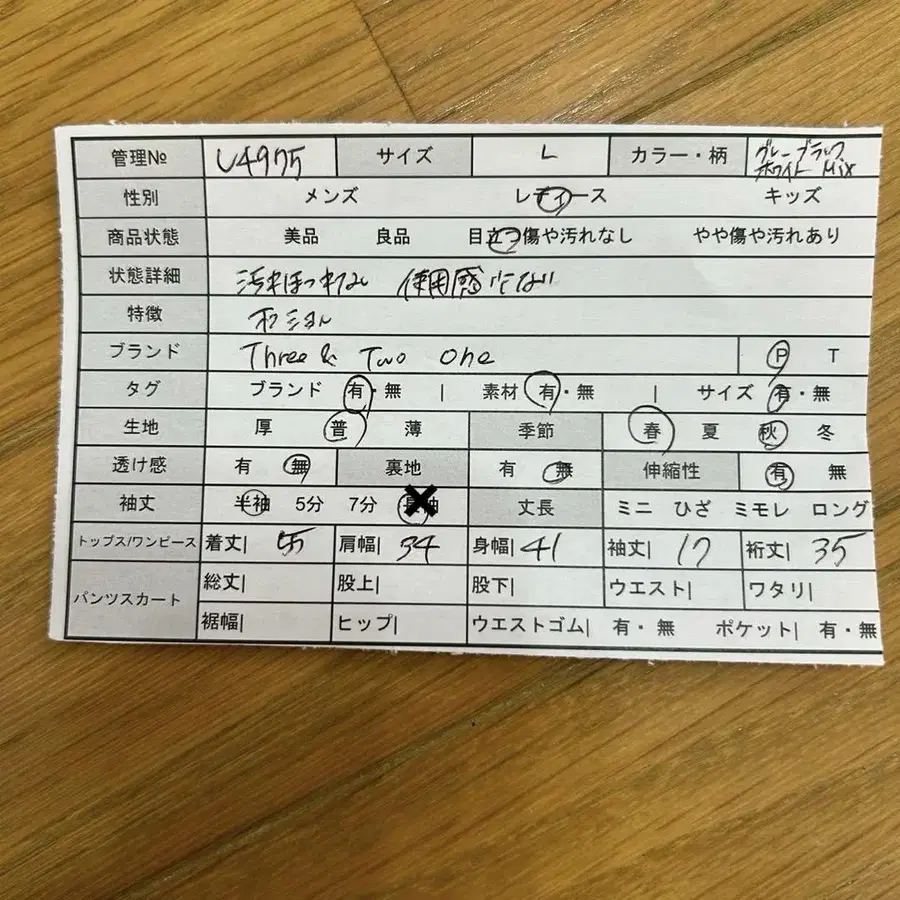 管理№ U4975 サイズ L カラー・柄 グレーブラック ホワイト Mix
性別 メンズ レディース キッズ
商品状態 美品 良品 目立つ傷や汚れなし やや傷や汚れあり
状態詳細 汚れほつれなし 使用感少ない
特徴
ブランド Three & Two One P T
タグ ブランド 有・無 | 素材 有・無 | サイズ 有・無
生地 厚 普 薄 季節 春 夏 秋 冬
透け感 有 無 裏地 有 無 伸縮性 有 無
袖丈 半袖 5分 7分 長袖 丈長 ミニ ひざ ミモレ ロング
トップス/ワンピース 着丈| 肩幅| 34 身幅| 41 袖丈| 17 裄丈| 35
パンツスカート 総丈| 股上| 股下| ウエスト| ワタリ|
裾幅| ヒップ| ウエストゴム| 有・無 ポケット| 有・無